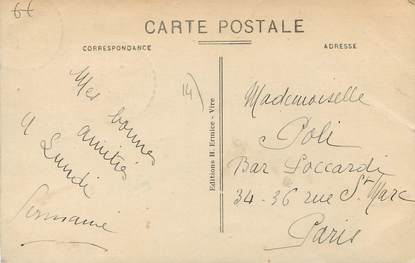 64
CARTE POSTALE
CORRESPONDANCE
ADRESSE
14)
Mes bonnes
amitiés
A Lundi
Germaine
Editions H. Ermice - Vire
Mademoiselle
Poli
Bar Poccardi
34-36 rue St Marc
Paris